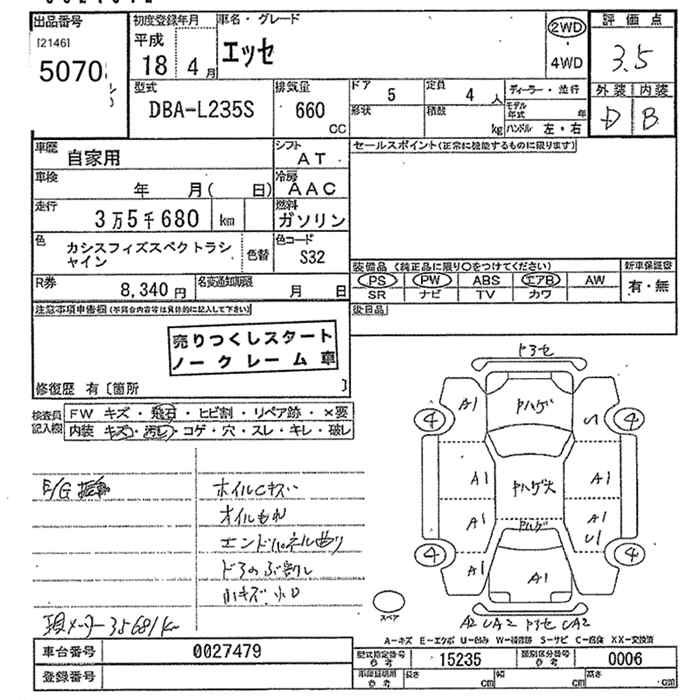 出品番号 初度登録年月 車名・グレード 評価点
[2146] 平成 エッセ 2WD 3.5
5070 18 4月 4WD 外装 内装
型式 排気量 ドア 定員 ディーラー・並行 D B
DBA-L235S 660 CC 5 4人 モデル年式 年
形状 積載 kg ハンドル 左・右
車歴 自家用 シフト AT セールスポイント(正常に機能するものに限ります)
車検 年 月( 日) 冷房 AAC
走行 3万5千680 km 燃料 ガソリン
色 カシスフィズスペクトラシャイン 色替 色コード S32
装備品(純正品に限り○をつけてください) 新車保証書
R券 8,340円 名変通知期限 月 日 PS PW ABS エアB AW 有・無
SR ナビ TV カワ
注意事項申告欄(不具合内容等は具体的に記入して下さい) 後日品
売りつくしスタート
ノークレーム車
修復歴 有〔箇所 〕
検査員記入欄 FW キズ・飛石・ヒビ割・リペア跡・×要
内装 キズ・汚れ・コゲ・穴・スレ・キレ・破レ
ドアセ
A1 ヤハゲ U
4 4
A1 ヤハゲ大 A1
A1 ヤハゲ A1 U1
4 4
A1 A1
スペア
A2 UA2 ドアセ UA2
E/G
ホイルCキズ
オイルもれ
エンドパネル曲り
小キズ 小凹
現メーター35681km
A-キズ E-エクボ U-凹み W-補修跡 S-サビ C-腐蝕 XX-交換済
車台番号 0027479 型式指定番号 参考 15235 類別区分番号 参考 0006
登録番号 車庫証明用 参考 長さ cm 幅 cm 高さ cm